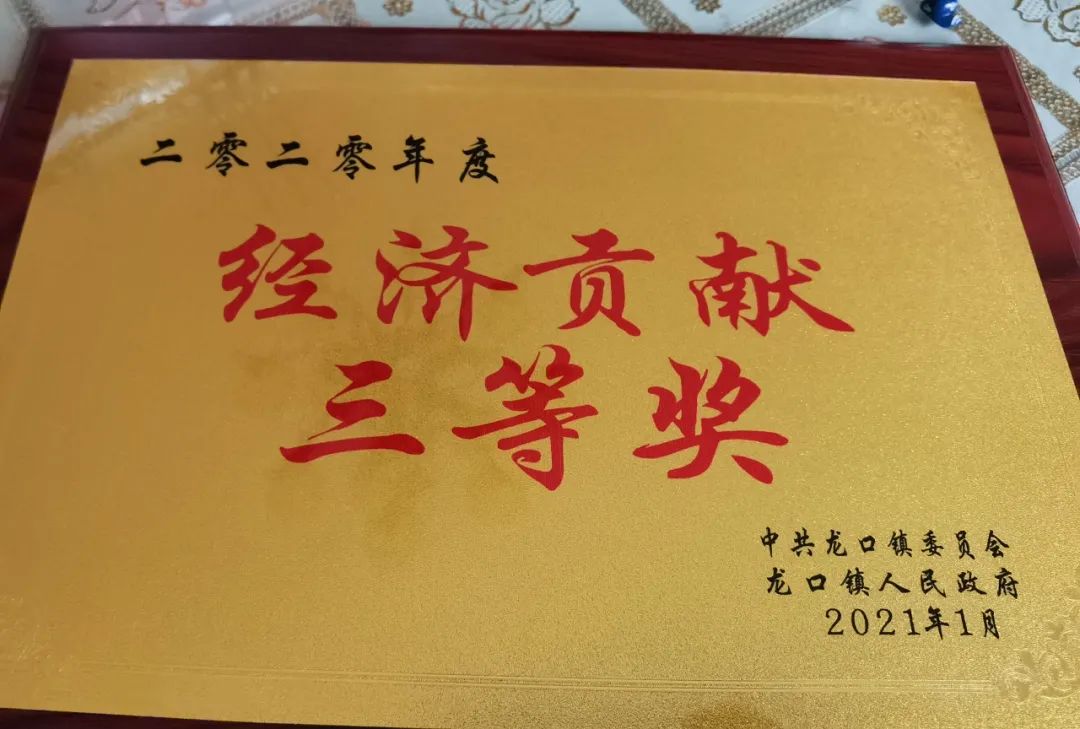 二零二零年度
经济贡献
三等奖
中共龙口镇委员会
龙口镇人民政府
2021年1月